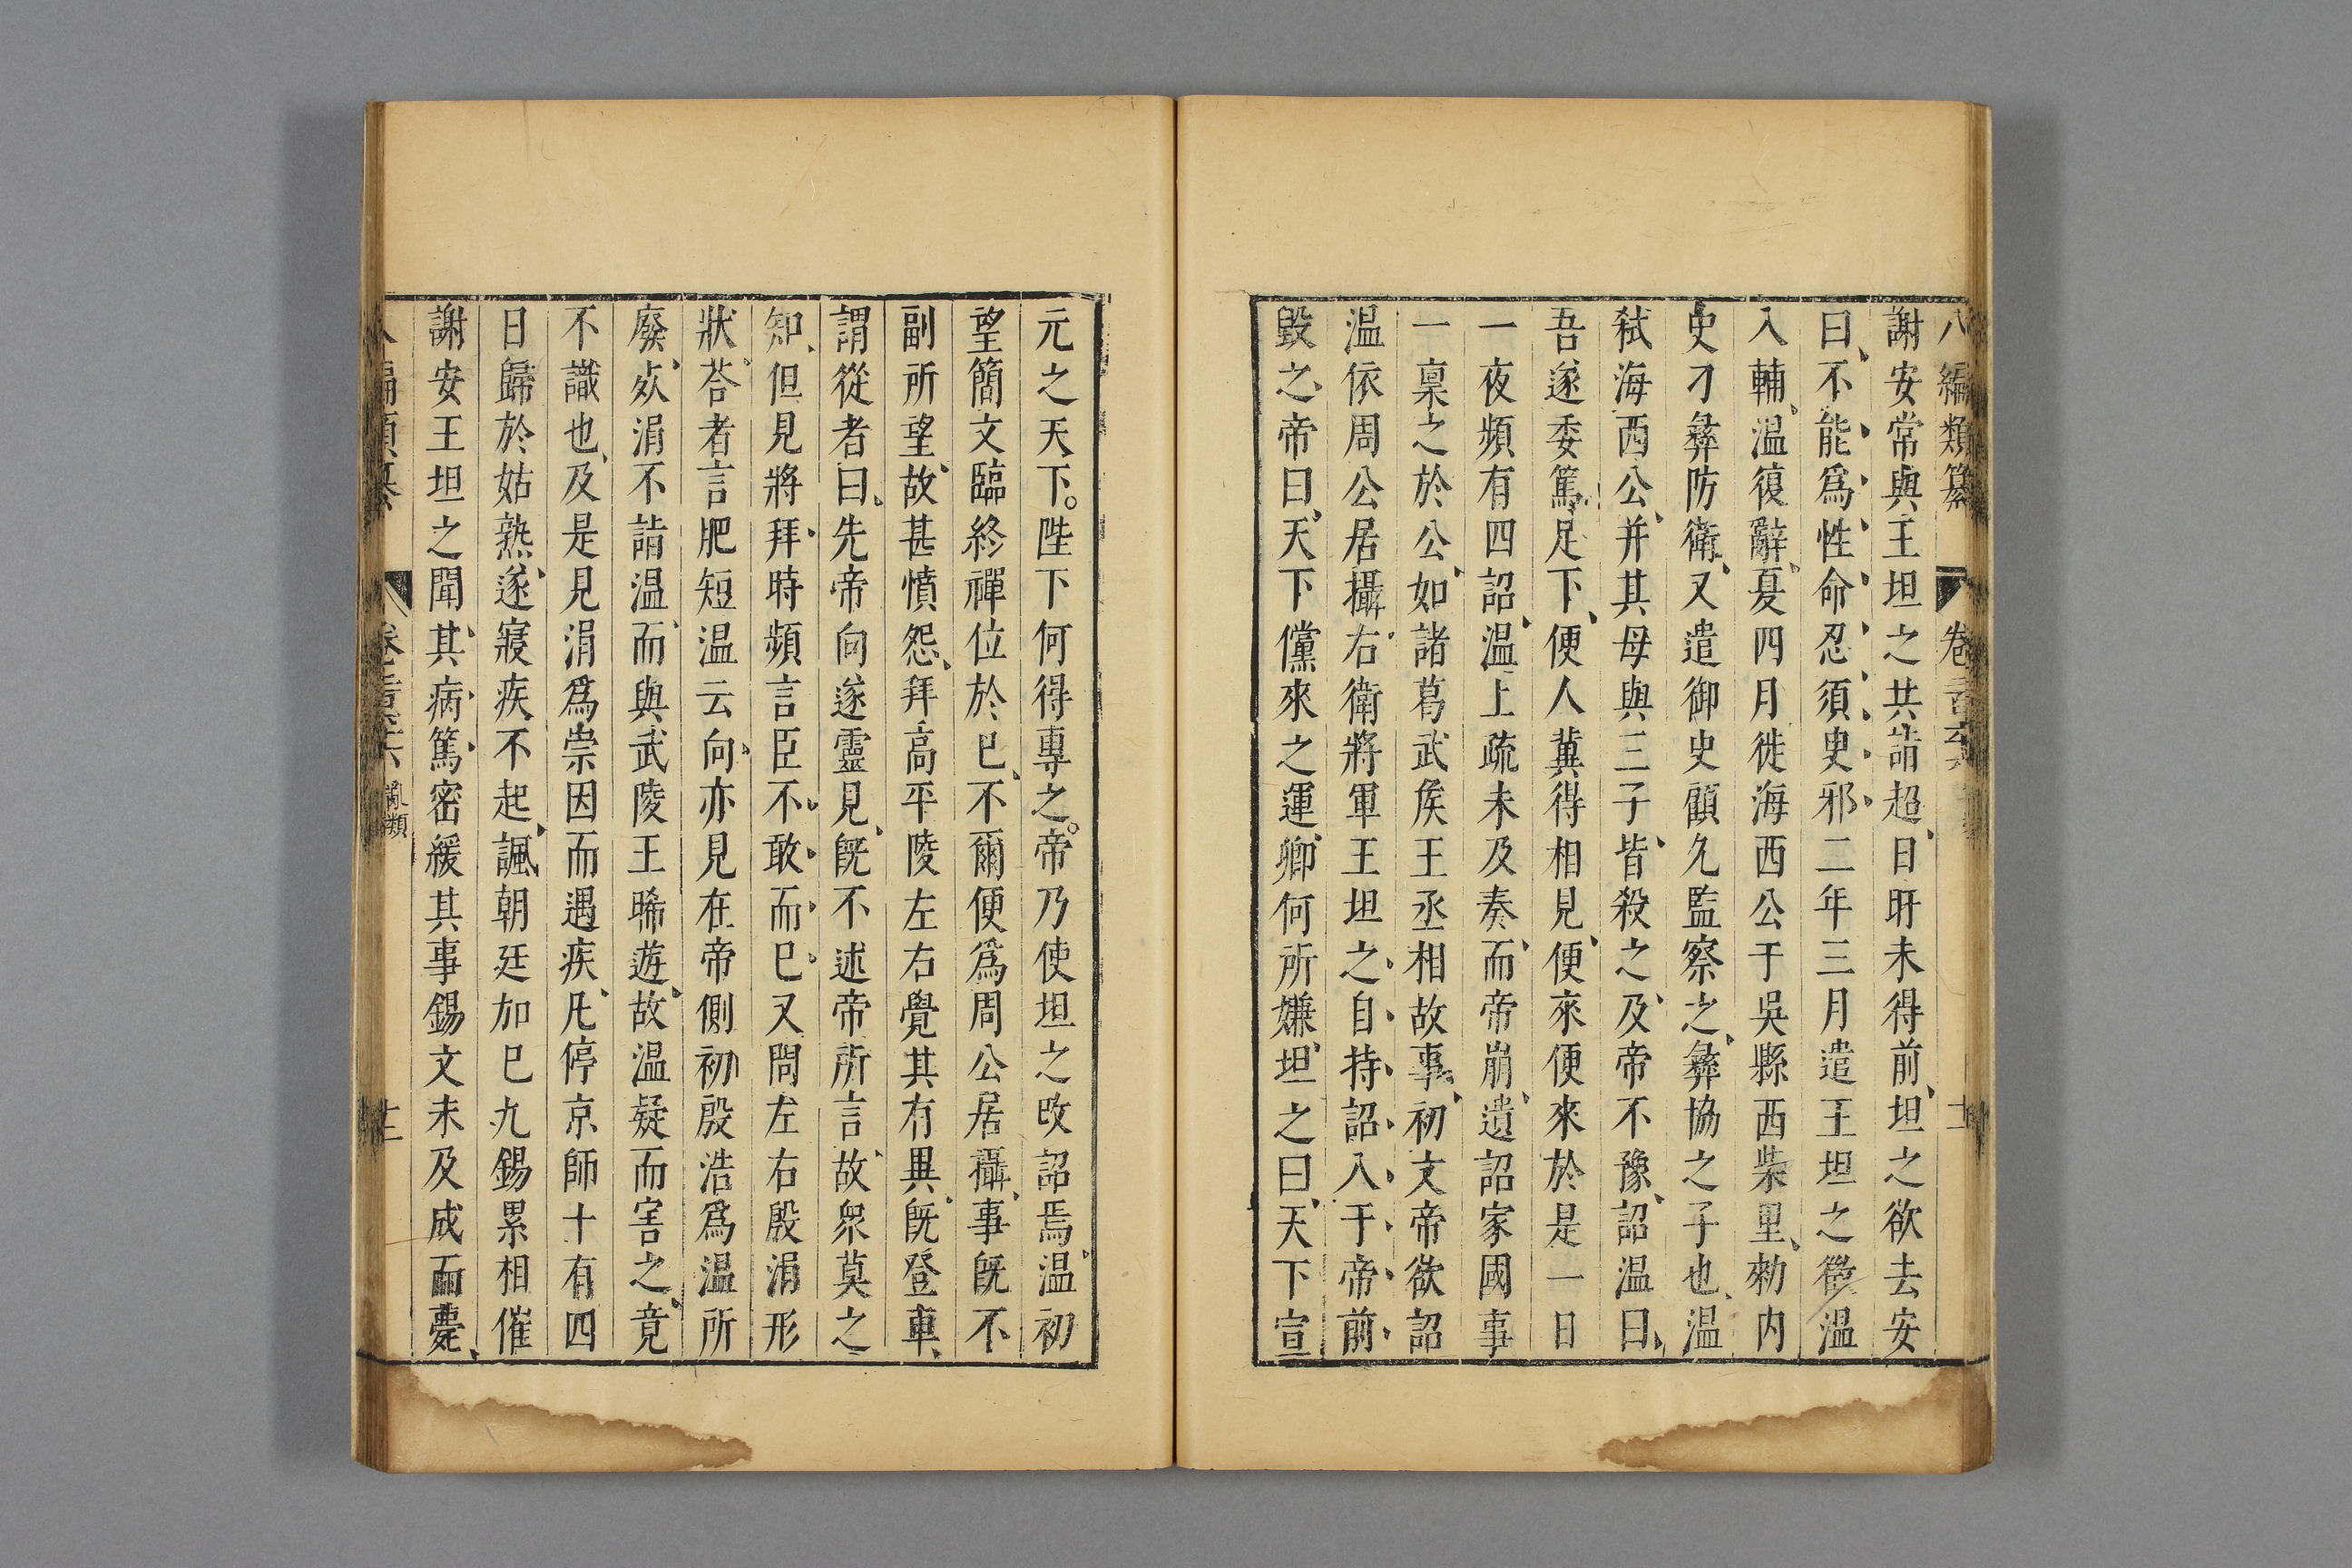 八編類纂 卷二百六 十一
謝安常與王坦之共詣超日旰未得前坦之欲去安
曰不能爲性命忍須臾邪二年三月遣王坦之徵溫
入輔溫復辭夏四月徙海西公于吳縣西柴里勑内
史刁彝防衛又遣御史顧允監察之彝協之子也溫
弑海西公并其母與三子皆殺之及帝不豫詔溫曰
吾遂委篤足下便人冀得相見便來便來於是一日
一夜頻有四詔溫上疏未及奏而帝崩遺詔家國事
一稟之於公如諸葛武矦王丞相故事初文帝欲詔
溫依周公居攝右衛將軍王坦之自持詔入于帝前
毀之帝曰天下儻來之運卿何所嫌坦之曰天下宣
元之天下。陛下何得專之。帝乃使坦之改詔焉溫初
望簡文臨終禪位於己不爾便爲周公居攝事旣不
副所望故甚憤怨拜高平陵左右覺其有異旣登車
謂從者曰先帝向遂靈見旣不述帝所言故衆莫之
知但見將拜時頻言臣不敢而已又問左右殷涓形
狀荅者言肥短溫云向亦見在帝側初殷浩爲溫所
廢死涓不詣溫而與武陵王晞遊故溫疑而害之竟
不識也及是見涓爲祟因而遇疾凡停京師十有四
日歸於姑熟遂寢疾不起諷朝廷加已九錫累相催
謝安王坦之聞其病篤密緩其事錫文未及成而薨
編類纂 卷二百六 亂類 十二